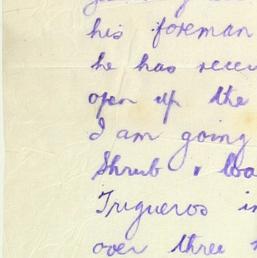 his foreman
he has recei
open up the
I am going
Shrub &
Trigueros in
over three